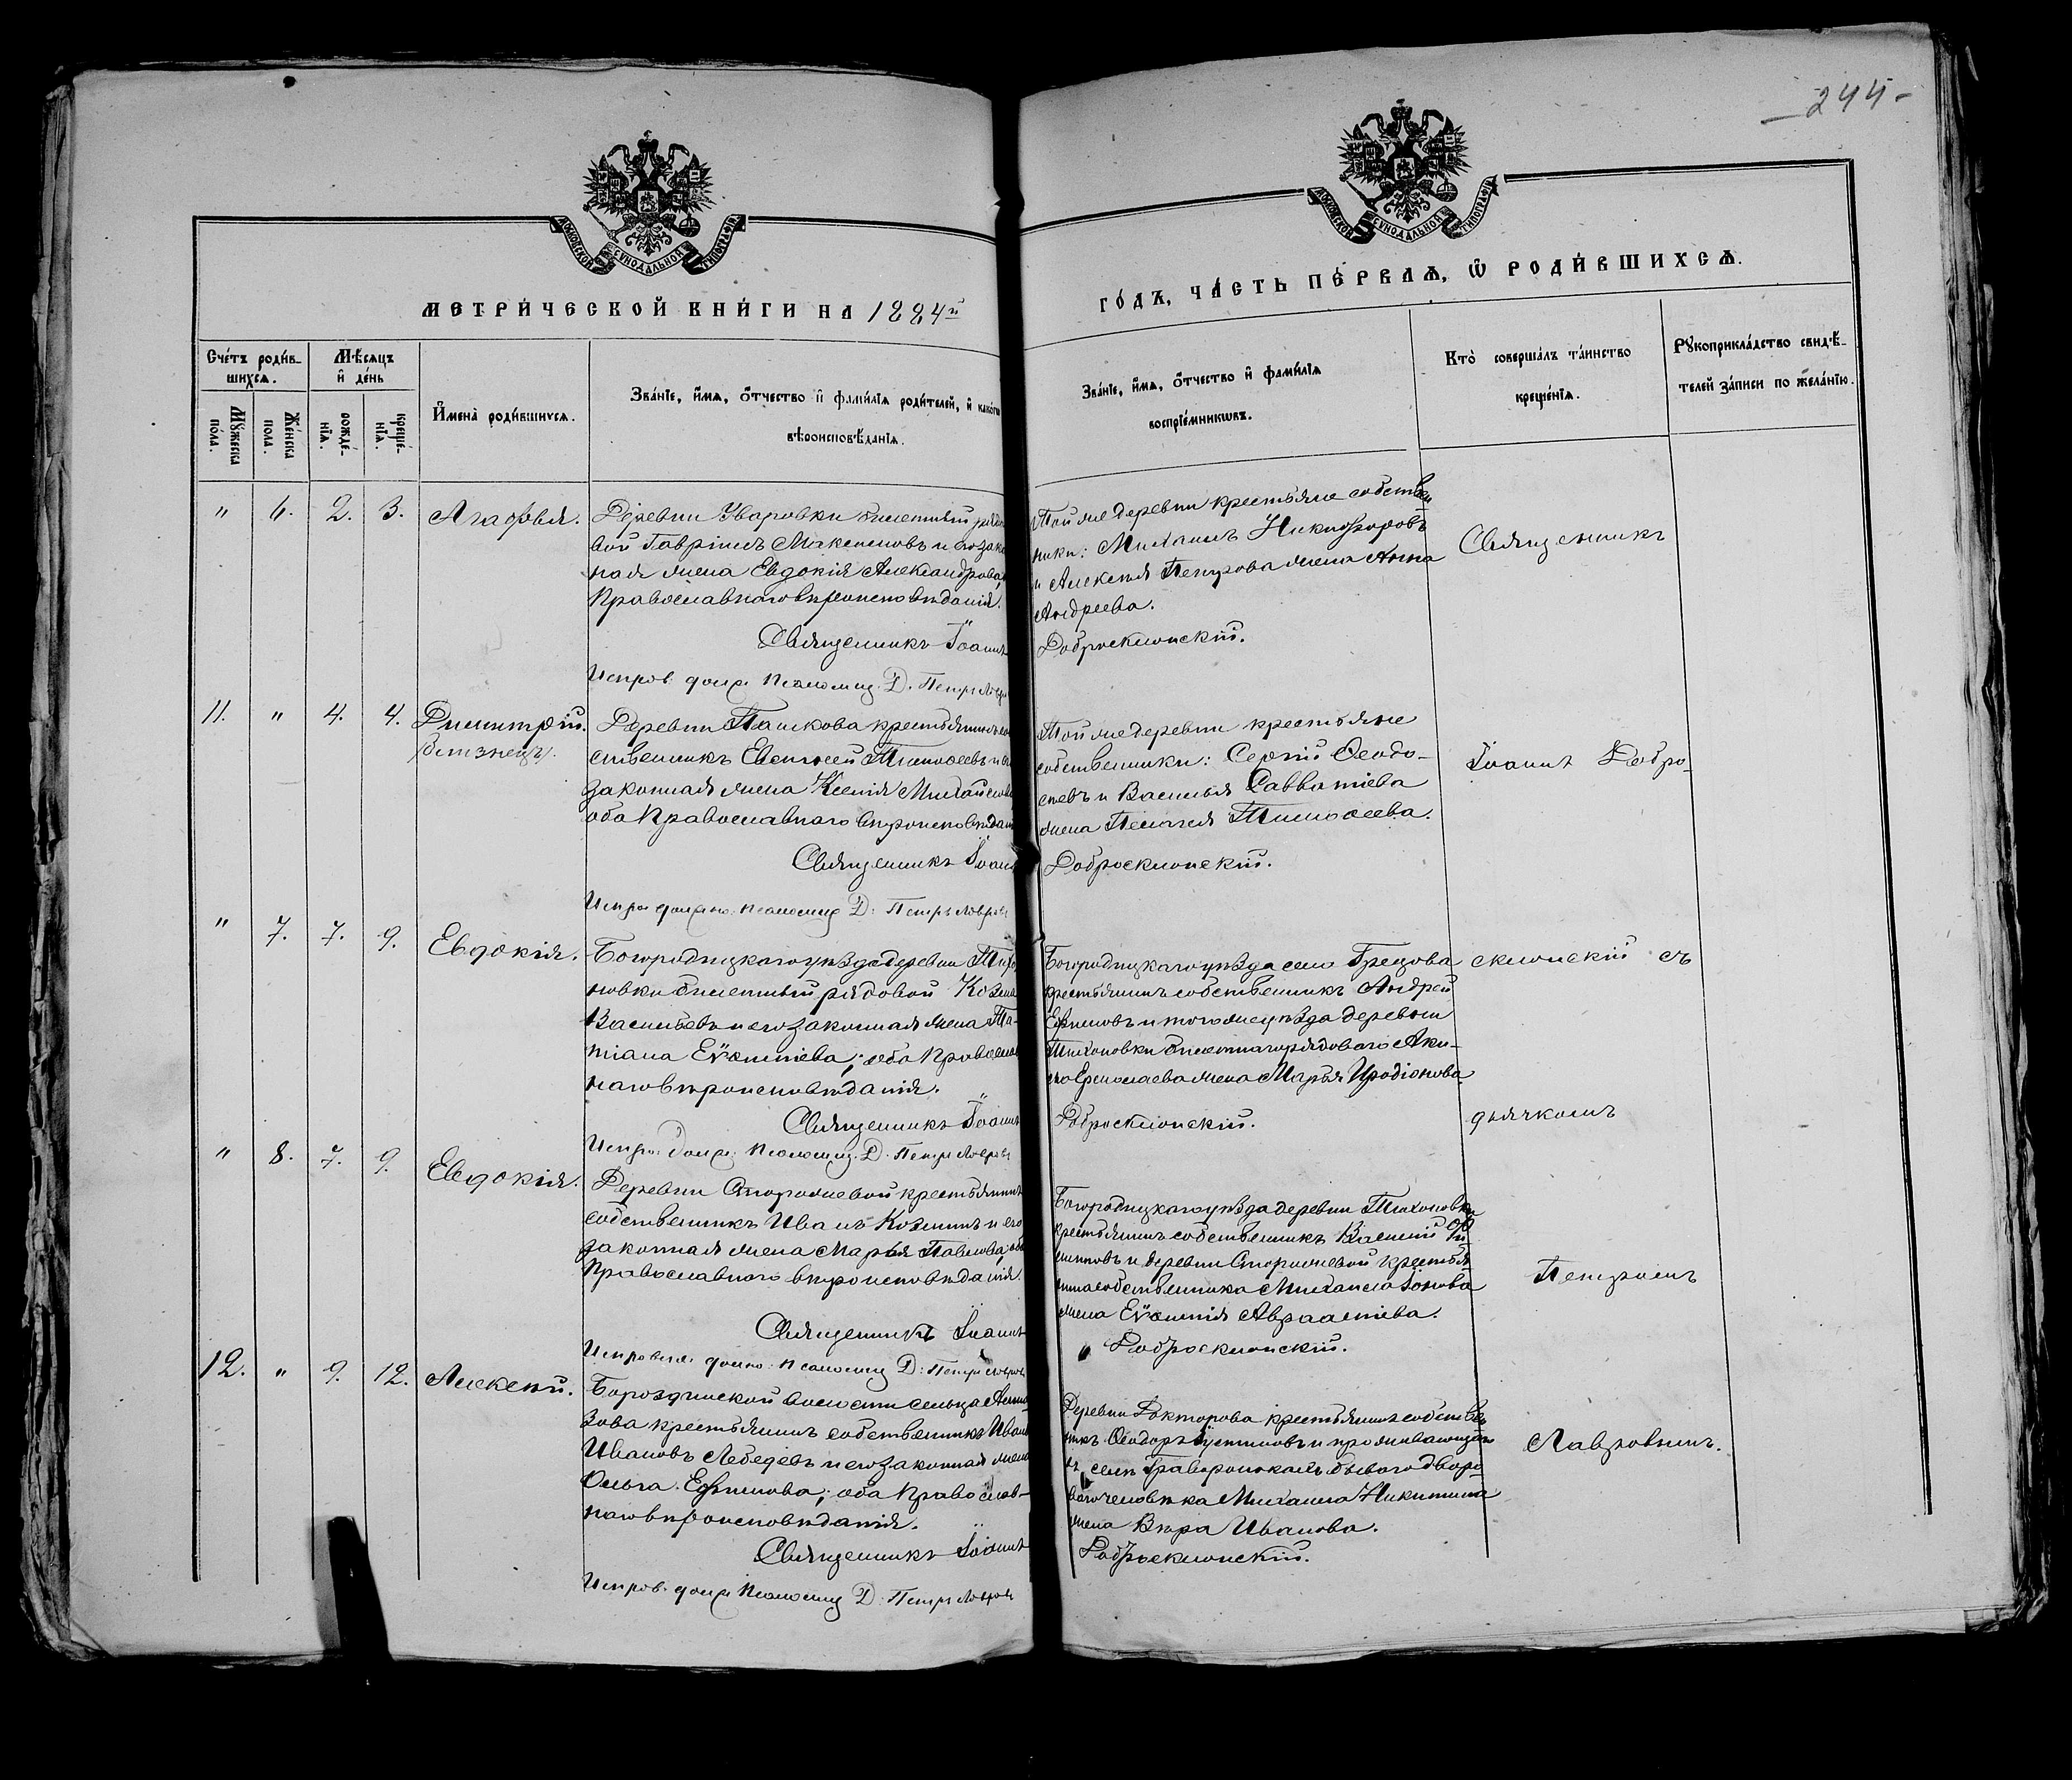 244
МОСКОВСКОЙ СѴНОДАЛЬНОЙ ТИПОГРАФІИ
МОСКОВСКОЙ СѴНОДАЛЬНОЙ ТИПОГРАФІИ
МЕТРИ́ЧЕСКОЙ КНИ́ГИ НА 1884й
ГО́ДЪ, ЧА́СТЬ ПЕ́РВАѦ, Ѿ РОДИ́ВШИХСѦ.
Сче́тъ роди́в-
шихсѧ.
Мѣ́сѧцъ
и҆ де́нь
Мꙋ́жеска
по́ла.
Же́нска
пола.
рожде́-
нїѧ.
креще́-
нїѧ.
И҆мена̀ роди́вшихсѧ.
Зва́нїе, и҆́мѧ, ѻ҆́тчество и҆ фамі́лїѧ роди́телей, и҆ како́гѡ
вѣроисповѣ́данїѧ.
Зва́нїе, и҆́мѧ, ѻ҆́тчество и҆ фамі́лїѧ
воспрїе́мникѡвъ.
Кто̀ соверша́лъ та́инство
креще́нїѧ.
Рꙋкоприкла́дство свидѣ́-
телей за́писи по жела́нїю.
" 6. 2. 3. Агафья.
Деревни Уваровки билетный рядо
вой Гавріилъ Максимовъ и его зако
ная жена Евдокія Александрова,
Православнаго вѣроисповѣданія.
Священникъ Іоаннъ
Испров. долж. Псаломщ. Д. Петръ Лавров
Той же деревни крестьяне собствен
ники: Михаилъ Никифоровъ
и Алексѣя Петрова жена Анна
Андреева.
Доброклонскій.
Священникъ
11. " 4. 4. Димитрій.
/близнецъ/.
Деревни Пашкова крестьянинъ соб
ственникъ Евсигней Тимоѳеевъ и его
законная жена Ксенія Михайлова
оба Православнаго вѣроисповѣдан
Священникъ Іоанн
Испр. должно. Псаломщ. Д: Петръ Лавровъ
Той же деревни крестьяне
собственники: Сергій Ѳеодо-
сіевъ и Василья Савватіева
жена Пелагея Тимоѳеева.
Доброклонскій.
Іоаннъ Добро-
" 7. 7. 9. Евдокія.
Богородицкаго уѣзда деревни Тихо
новки билетный рядовой Козма
Васильевъ и его законная жена Та-
тіана Еѵѳиміева; оба Православ
наго вѣроисповѣданія.
Священникъ Іоаннъ
Испр. долж. Псаломщ. Д. Петръ Лавровъ
Богородицкаго уѣзда села Грецова
крестьянинъ собственникъ Андрей
Ефимовъ и того же уѣзда деревни
Тихоновки билетнаго рядоваго Аки-
ма Ермолаева жена Марья Иродіонова
Доброклонскій.
клонскій съ
дьячкомъ
" 8. 7. 9. Евдокія.
Деревни Сторожевой крестьянинъ
собственникъ Иванъ Козминъ и его
законная жена Марья Павлова, оба
Православнаго вѣроисповѣданія.
Священникъ Іоаннъ
Исправля. должно: Псаломщ Д: Петръ Лавровъ
Богородицкаго уѣзда деревни Тихоновки
крестьянинъ собственникъ Василій Фи
липповъ и деревни Сторожевой крестья
нина собственника Михаила Іонова
жена Еѵѳимія Аврааміева.
Доброклонскій.
Петромъ
12. " 9. 12. Алексѣй.
крестьянинъ собственникъ Иванъ
Ивановъ Лебедевъ и его законная жена
Ольга Ефимова; оба Православ-
наго вѣроисповѣданія.
Священникъ Іоаннъ
Испров. долж. Псаломщ. Д: Петръ Лавровъ
Деревни Докторова крестьянинъ собствен
никъ Ѳеодоръ Іустиновъ и проживающаго
въ селѣ бывшаго дворо
ваго человѣка Михаила Никитина
жена Вѣра Иванова.
Доброклонскій.
Лавровымъ.